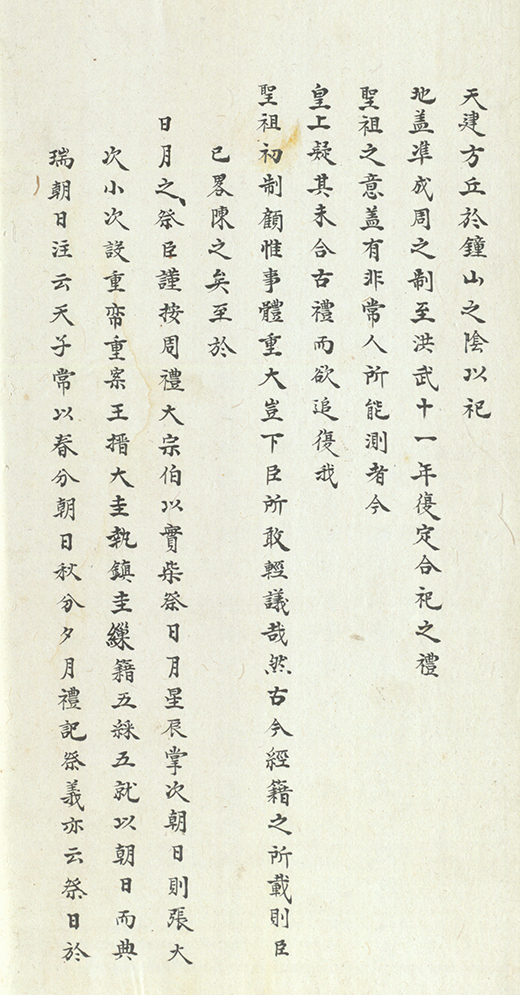 天建方丘於鐘山之陰以祀
地盖凖成周之制至洪武十一年復定合祀之禮
聖祖之意盖有非常人所能測者今
皇上疑其未合古禮而欲追復我
聖祖初制顧惟事體重大豈下臣所敢輕議哉然古今經籍之所載則臣
已畧陳之矣至於
日月之祭臣謹按周禮大宗伯以實柴祭日月星辰掌次朝日則張大
次小次設重帟重案王搢大圭執鎮圭繅籍五綵五就以朝日而典
瑞朝日注云天子常以春分朝日秋分夕月禮記祭義亦云祭日於